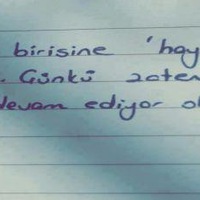 birisine 'hay
. Günkü zaten
devam ediyor ol